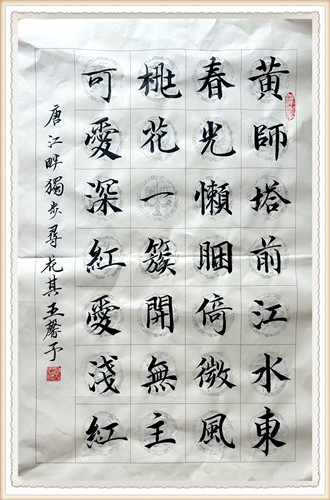 黃師塔前江水東
春光懶困倚微風
桃花一簇開無主
可愛深紅愛淺紅
唐江畔獨步尋花其五馨予